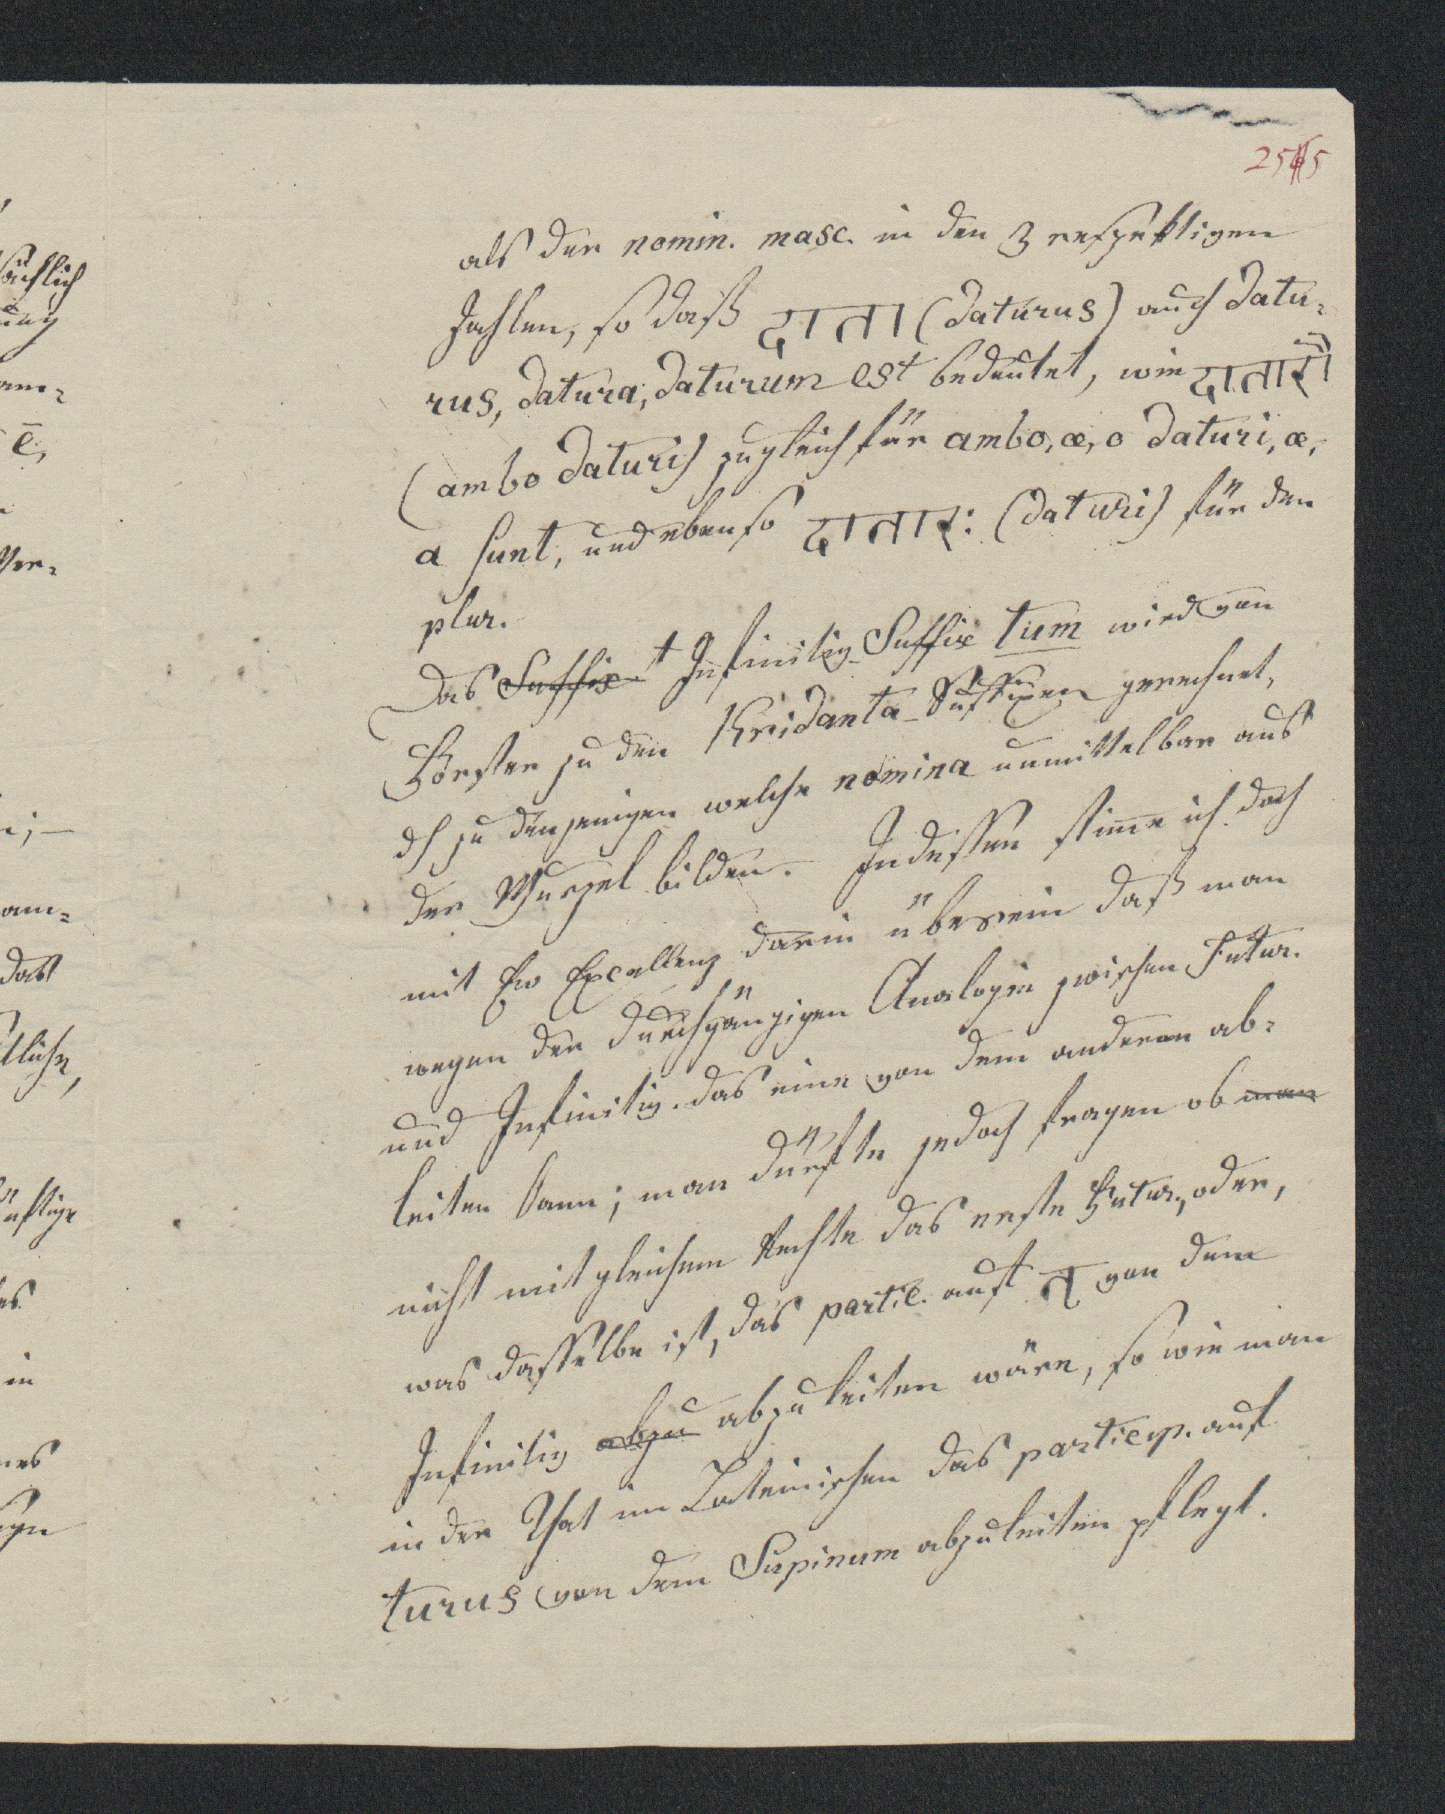 als der nomin. masc. in den 3 respektigen
Zahlen, so daß दाता (daturus) auch datu-
rus, datura, daturum est bedeutet, wie दातारौ
(ambo daturi) zugleich für ambo, æ, o daturi, æ,
a sunt, und ebenso दातारः (daturi) für den
plur.
Das Suffix t Infinitiv-Suffix tum wird von
Forster zu den Kridanta-Suffixen gerechnet,
dh zu denjenigen welche nomina unmittelbar aus
der Wurzel bilden. Indessen stimme ich doch
mit Ew Excellenz darin überein daß man
wegen der durchgängigen Analogie zwischen Futur.
und Infinitiv. das eine von dem anderen ab-
leiten kann; man dürfte jedoch fragen ob man
nicht mit gleichem Rechte das erste Futur., oder,
was dasselbe ist, das partic. auf तृ von dem
Infinitiv abzu abzuleiten wäre, so wie man
in der That im Lateinischen das particip. auf
turus von dem Supinum abzuleiten pflegt.
sächlich
ē,
das
in